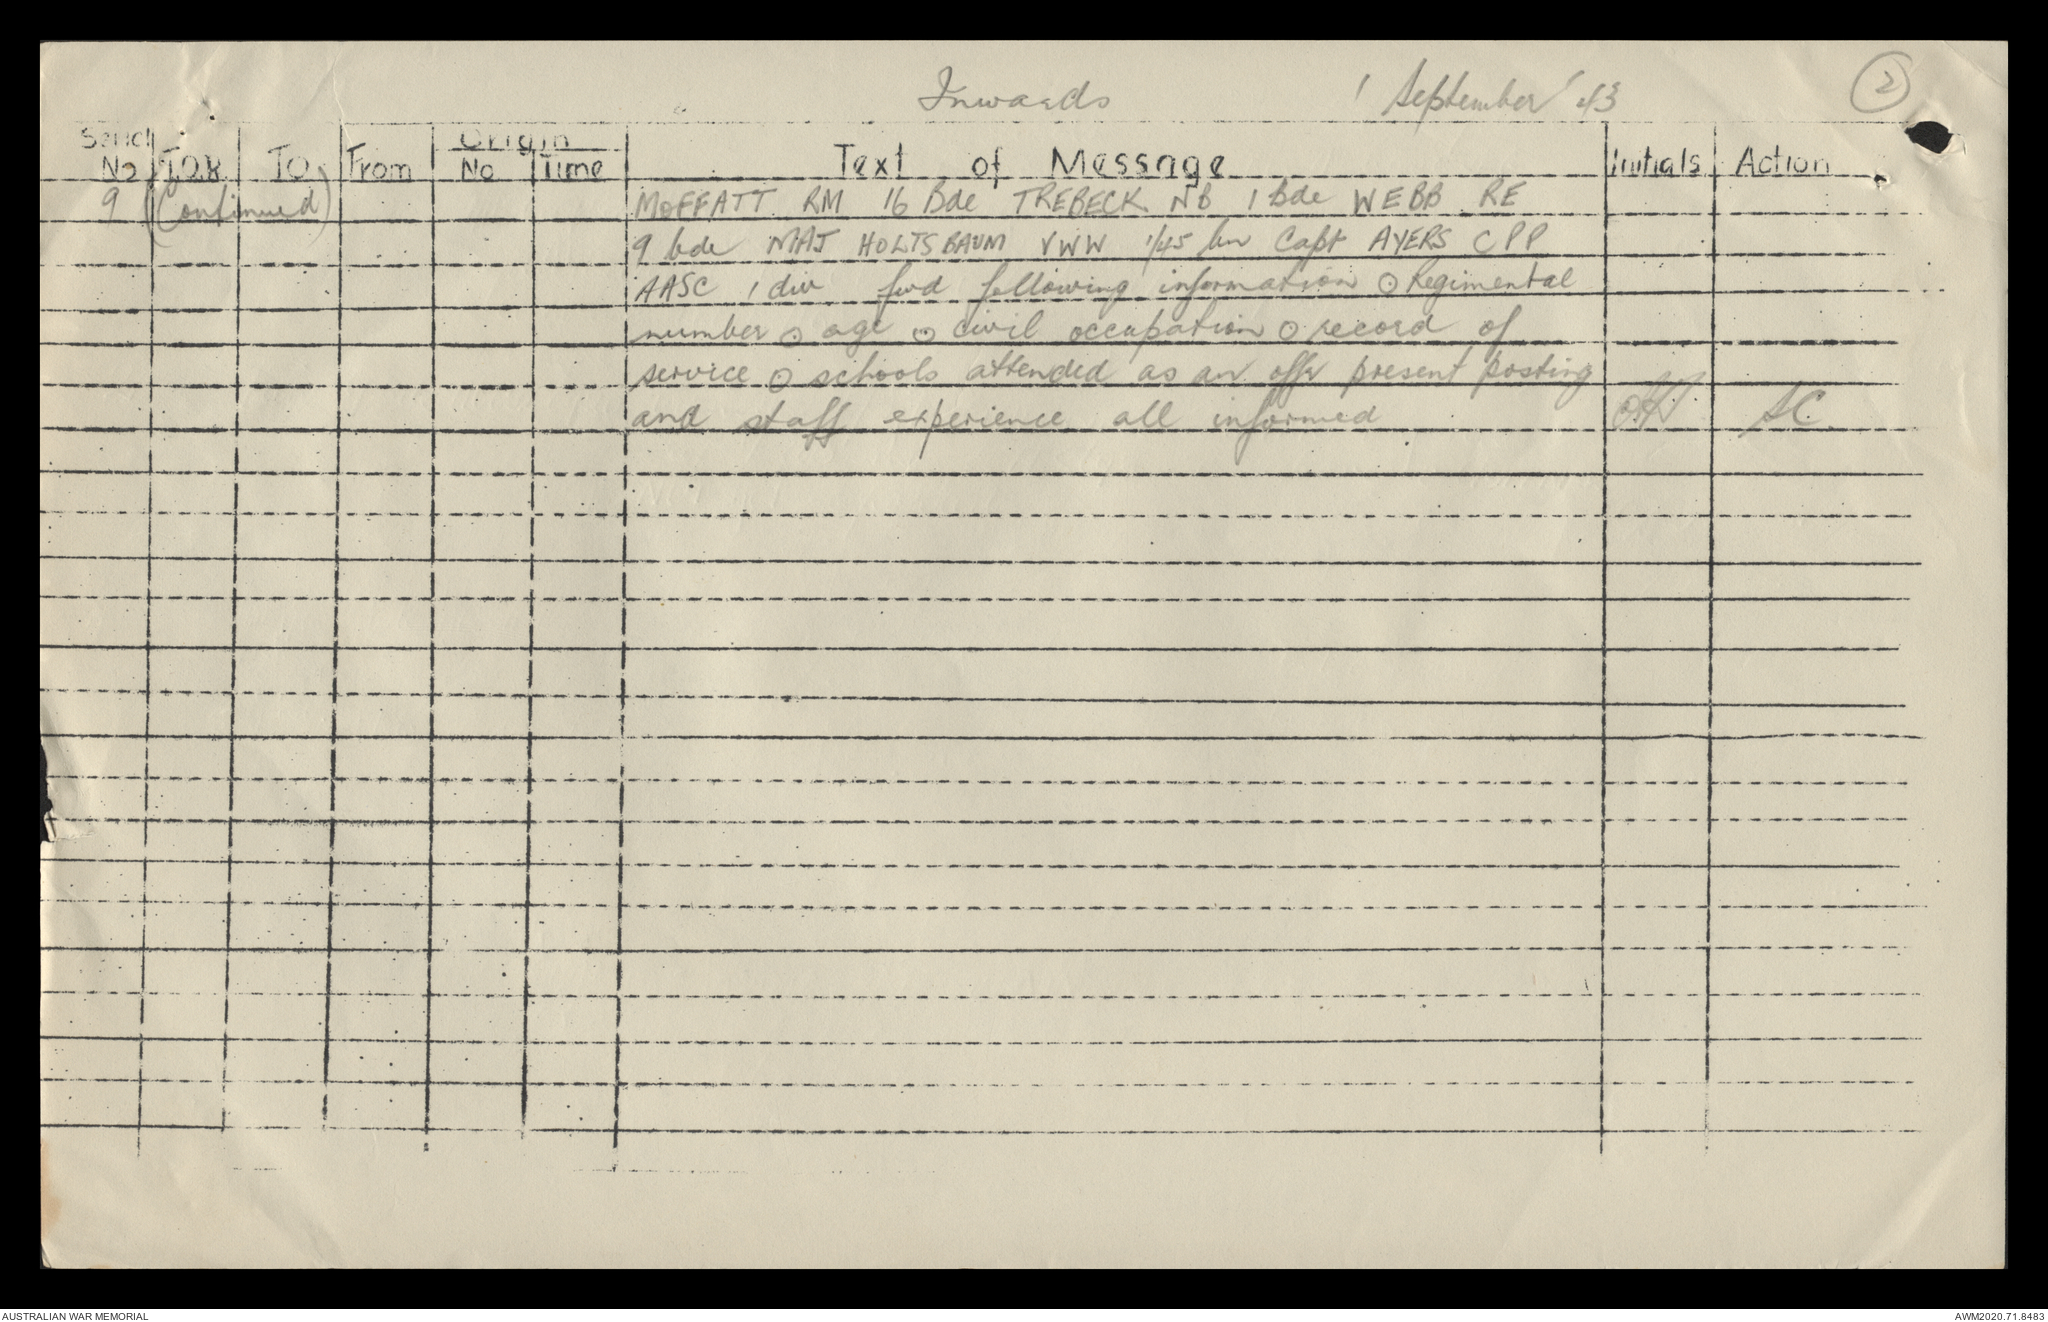 Inwards 1 September '43 2
Serial Origin
No T.O.R. TO From No Time Text of Message Initials Action
9 (Continued) MOFFATT RM 16 Bde TREBECK NB 1 bde WEBB RE
9 bde MAJ HOLTSBAUM VWW 1/45 bn Capt AYERS CPP
AASC 1 div fwd following information ⊙ Regimental
number ⊙ age ⊙ civil occupation ⊙ record of
service ⊙ schools attended as an offr present posting
and staff experience all informed SC.
AUSTRALIAN WAR MEMORIAL AWM2020.71.8483